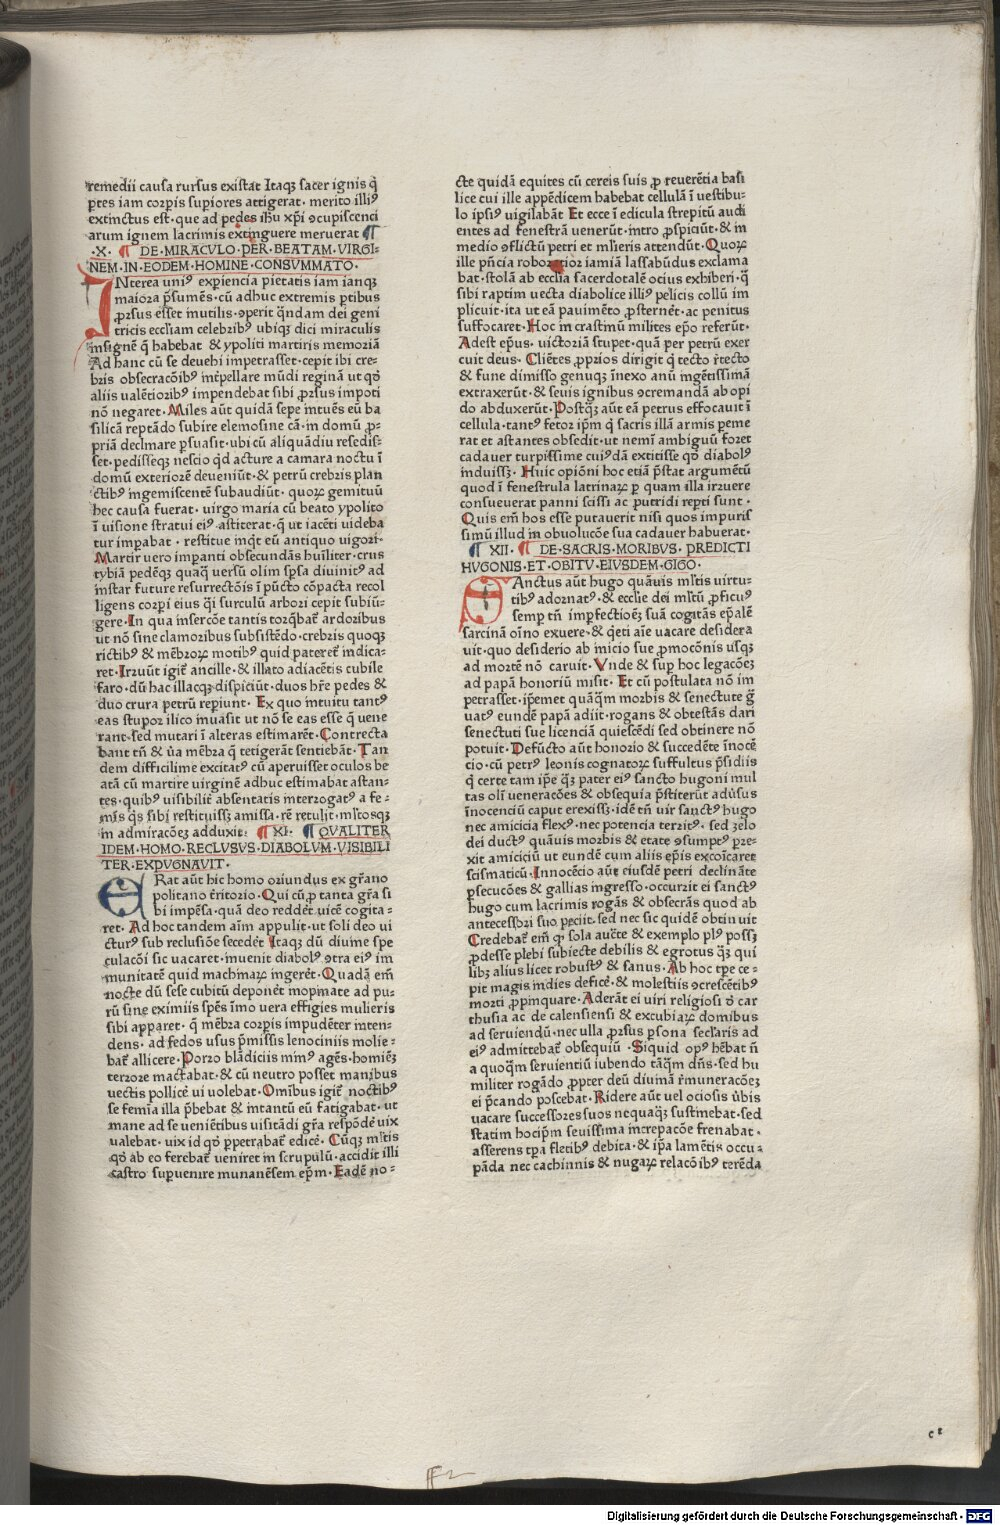 remedii causa rursus existat Itaqꝫ sacer ignis q̄
ptes iam corpis supiores attigerat· merito illiꝰ
extinctus est· que ad pedes ihu xp̄i ꝯcupiscenci
arum ignem lacrimis extinguere meruerat ¶
·X· ¶ DE·MIRACVLO·PER·BEATAM·VIRGI-
NEM·IN·EODEM·HOMINE·CONSVMMATO·
INterea uniꝰ expiencia pietatis iam ianqꝫ
maiora p̄sumēs· cū adhuc extremis ptibus
ꝓrsus esset inutilis· ꝯperit qndam dei geni
tricis eccliam celebribꝰ ubiqꝫ dici miraculis
insignē q̄ habebat & ypoliti martiris memoriā
Ad hanc cū se deuehi impetrasset· cepit ibi cre-
bris obsecracōibꝰ int̄pellare mūdi reginā ut qd̄
aliis ualētioribꝰ impendebat sibi ꝓrsus impoti
nō negaret· Miles aūt quidā sepe intuēs eū ba
silicā reptādo subire elemosine cā· in domū ꝓ-
priā declinare ꝑsuasit· ubi cū aliquādiu resedis-
set· pedisseqꝫ nescio qd acture a camara noctu ī
domū exteriorē deueniūt· & petrū crebris plan
ctibꝰ ingemiscentē subaudiūt· quoꝝ gemituū
hec causa fuerat· uirgo maria cū beato ypolito
ī uisione stratui eiꝰ· astiterat· q̄ ut iacēti uideba
tur imꝑabat · restitue inq̄t eū antiquo uigori·
Martir uero impanti obsecundās hūiliter· crus
tybiā pedēqꝫ quaq̄ uersū olim spsa diuinitꝰ ad
instar future resurrectōis ī pūcto cōpacta recol
ligens corpi eius q̄i surculū arbori cepit subiū-
gere· In qua insercōe tantis torqbat̄ ardoribus
ut nō sine clamoribus subsistēdo· crebris quoqꝫ
rictibꝰ & mēbroꝝ motibꝰ quid pateret̄ indica-
ret· Irruūt igit̄ ancille· & illato adiacētis cubile
faro· dū hac illacqꝫ dispiciūt· duos hr̄e pedes &
duo crura petrū repiunt· Ex quo intuitu tantꝰ
eas stupor ilico inuasit ut nō se eas esse q̄ uene
rant· sed mutari ī alteras estimarēt· Contrecta
bant tn̄ & ūa mēbra q̄ tetigerāt sentiebāt· Tan
dem difficilime excitatꝰ cū aperuisset oculos be
atā cū martire uirginē adhuc estimabat astan-
tes· quibꝰ uisibilie absentatis interrogatꝰ a fe-
mīs qs sibi restituissꝫ amissa· rē retulit· ml̄tosqꝫ
in admiracōeꝫ adduxit: ¶ XI· ¶ QVALITER
IDEM·HOMO·RECLVSVS·DIABOLVM·VISIBILI
TER·EXPVGNAVIT·
ERat aūt hic homo oriundus ex gr̄ano
politano t̄ritorio· Qui cū ꝓ tanta gr̄a si
bi impēsa· quā deo reddēt uicē cogita-
ret· Ad hoc tandem aīm appulit· ut soli deo ui
cturꝰ sub reclusiōe secedēt Itaqꝫ dū diuine spe
culacōi sic uacaret· inuenit diabolꝰ ꝯtra eiꝰ im
munitatē quid machinaꝝ ingerēt· Quadā em̄
nocte dū sese cubitū deponēt inopinate ad pu-
rū sine eximiis spēs īmo uera effigies mulieris
sibi apparet· q̄ mēbra corpis impudēter inten-
dens· ad fedos usus p̄missis lenociniis molie-
bat̄ allicere· Porro blādiciis minꝰ agēs· homiēꝫ
terrore mactabat· & cū neutro posset manibus
uectis pollicē ui uolebat· Omibus igit̄ noctibꝰ
se femīa illa p̄bebat & intantū eū fatigabat· ut
mane ad se ueniētibus uisitādi gr̄a respōdē uix
ualebat· uix id qd̄ ppetrabat̄ edicē· Cūqꝫ ml̄tis
qd̄ ab eo ferebat̄ ueniret in scrupulū· accidit illi
castro supuenire munanēsem ep̄m· Eadē no-
cte quidā equites cū cereis suis ꝓ reuerētia basi
lice cui ille appēdicem habebat cellulā ī uestibu-
lo ipsiꝰ uigilabāt· Et ecce ī edicula strepitū audi
entes ad fenestrā uenerūt· intro ꝓspiciūt· & in
medio ꝯflictū petri et ml̄ieris attendūt· Quoꝝ
ille pn̄cia roboratior iamiā lassabūdus exclama
bat· stolā ab ecclīa sacerdotalē ocius exhiberi· q̄
sibi raptim uecta diabolice illiꝰ pelicis collū im
plicuit· ita ut eā pauimēto ꝓsternēt· ac penitus
suffocaret· Hoc in crastinū milites ep̄o referūt·
Adest ep̄us· uictoriā stupet· quā per petrū exer
cuit deus· Cliētes ꝓprios dirigit q̄ tecto r̄tecto
& fune dimisso genuqꝫ inexo anū ingētissimā
extraxerūt· & seuis ignibus ꝯcremandā ab opi
do abduxerūt· Postqꝫ aūt eā petrus effocauit ī
cellula· tantꝰ fetor ip̄m q̄ sacris illā armis ꝑeme
rat et astantes obsedit· ut nemī ambiguū foret
cadauer turpissime cuiꝰdā extitisse qd̄ diabolꝰ
induissꝫ· Huic opiōni hoc etiā p̄stat argumētū
quod ī fenestrula latrinaꝝ ꝑ quam illa irruere
consueuerat panni scissi ac putridi repti sunt ·
Quis em̄ hos esse putauerit nisi quos impuris
simū illud in obuolucōe sua cadauer habuerat·
¶ XII· ¶ DE·SACRIS·MORIBVS·PREDICTI
HVGONIS·ET·OBITV·EIVSDEM·GIGO·
SAnctus aūt hugo quāuis ml̄tis uirtu-
tibꝰ adornatꝰ· & ecclie dei ml̄tū ꝓficuꝰ
semp tn̄ impfectioēꝫ suā cogitās ep̄alē
sarcinā oīno exuere· & q̄eti aīe uacare desidera
uit· quo desiderio ab inicio sue ꝓmocōnis usqꝫ
ad mortē nō caruit· Vnde & sup hoc legacōeꝫ
ad papā honoriū misit· Et cū postulata nō im
petrasset· ip̄emet quāq̄m morbis & senectute g̃
uatꝰ eundē papā adiit· rogans & obtestās dari
senectuti sue licenciā quiescēdi sed obtinere nō
potuit· Defūcto aūt honorio & succedēte īnocē
cio· cū petrꝰ leonis cognatoꝝ suffultus p̄sidiis
q̄ certe tam ip̄e q̄ꝫ pater eiꝰ sancto hugoni mul
tas olī ueneracōes & obsequia p̄stiterūt adūsus
īnocenciū caput erexissꝫ· idē tn̄ uir sanctꝰ hugo
nec amicicia flexꝰ· nec potencia territꝰ· sed zelo
dei ductꝰ quāuis morbis & etate ꝯsumptꝰ ꝑre-
xit amiciciū ut eundē cum aliis ep̄is excoīcaret
scismaticū· Innocēcio aūt eiusdē petri declināte
ꝑsecucōes & gallias ingresso· occurrit ei sanctꝰ
hugo cum lacrimis rogās & obsecrās quod ab
antecessori suo peciit· sed nec sic quidē obtinuit
Credebat̄ em̄ q ꝫ sola auct̄e & exemplo plꝰ possꝫ
ꝓdesse plebi subiecte debilis & egrotus q̄ꝫ qui
libꝫ alius licet robustꝰ & sanus· Ab hoc tp̄e ce-
pit magis indies deficē· & molestiis ꝯcrescētibꝰ
morti ꝓpinquare· Aderāt ei uiri religiosi d̄ car
thusia ac de calensiensi & excubiaꝝ domibus
ad seruiendū· nec ulla ꝓrsus ꝑsona seclaris ad
eiꝰ admittebat̄ obsequiū · Siquid opꝰ hēbat n̄
a quoq̄m seruientiū iubendo tāq̄m dn̄s· sed hu
militer rogādo ꝓpter deū diuinā r̄muneracōeꝫ
ei p̄cando poscebat· Ridere aūt uel ociosis ūbis
uacare successores suos nequaqꝫ sustinebat· sed
statim hocip̄m seuissima increpacōe frenabat·
asserens tp̄a fletibꝰ debita· & ip̄a lamētis occu-
pāda nec cachinnis & nugaꝝ relacōibꝰ terēda
c 2
Digitalisierung gefördert durch die Deutsche Forschungsgemeinschaft · DFG